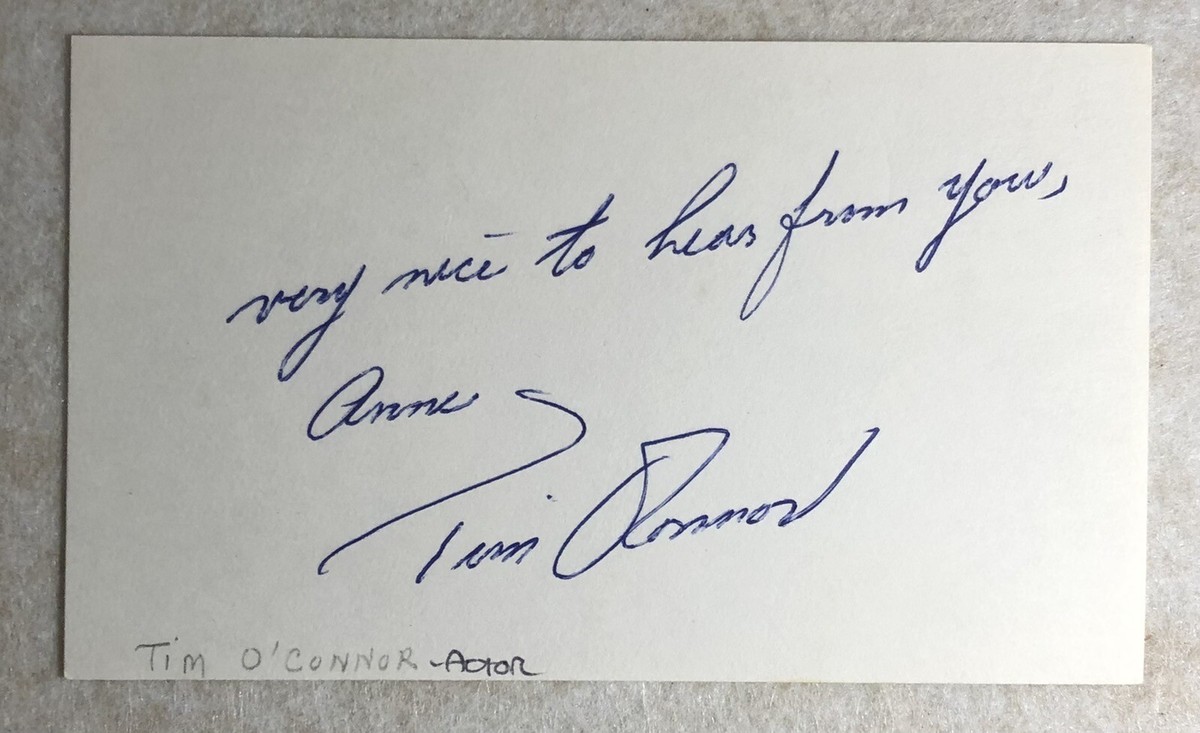 very nice to hear from you,
Anne
Tim O'Connor
TIM O'CONNOR -ACTOR